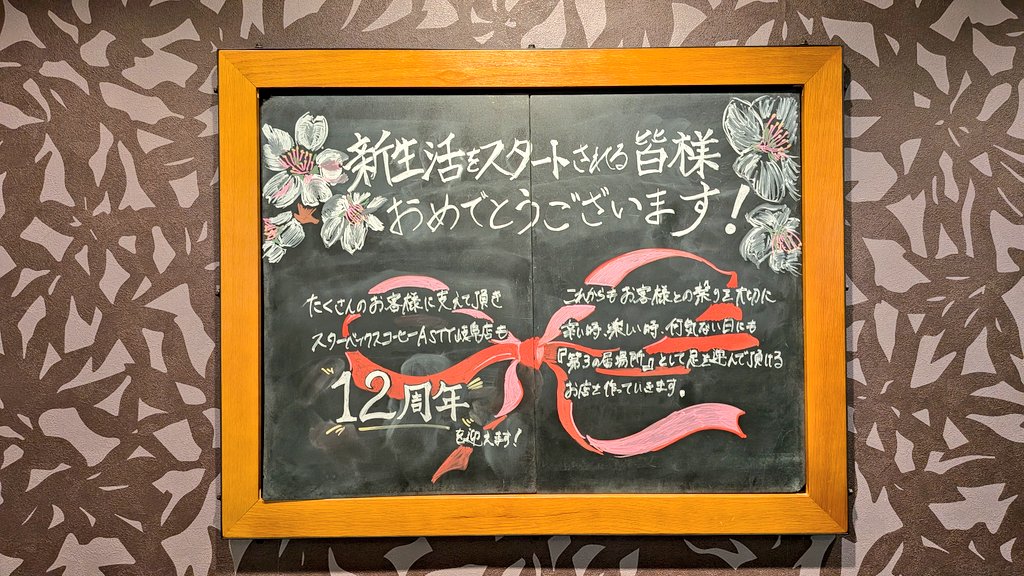 新生活をスタートされる皆様
おめでとうございます！
たくさんのお客様に支えて頂き
スターバックスコーヒーASTY岐阜店も
12周年
を迎えます！
これからもお客様との繋りを大切に
辛い時、楽しい時、何気ない日にも
『第3の居場所』として足を運んで頂ける
お店を作っていきます。